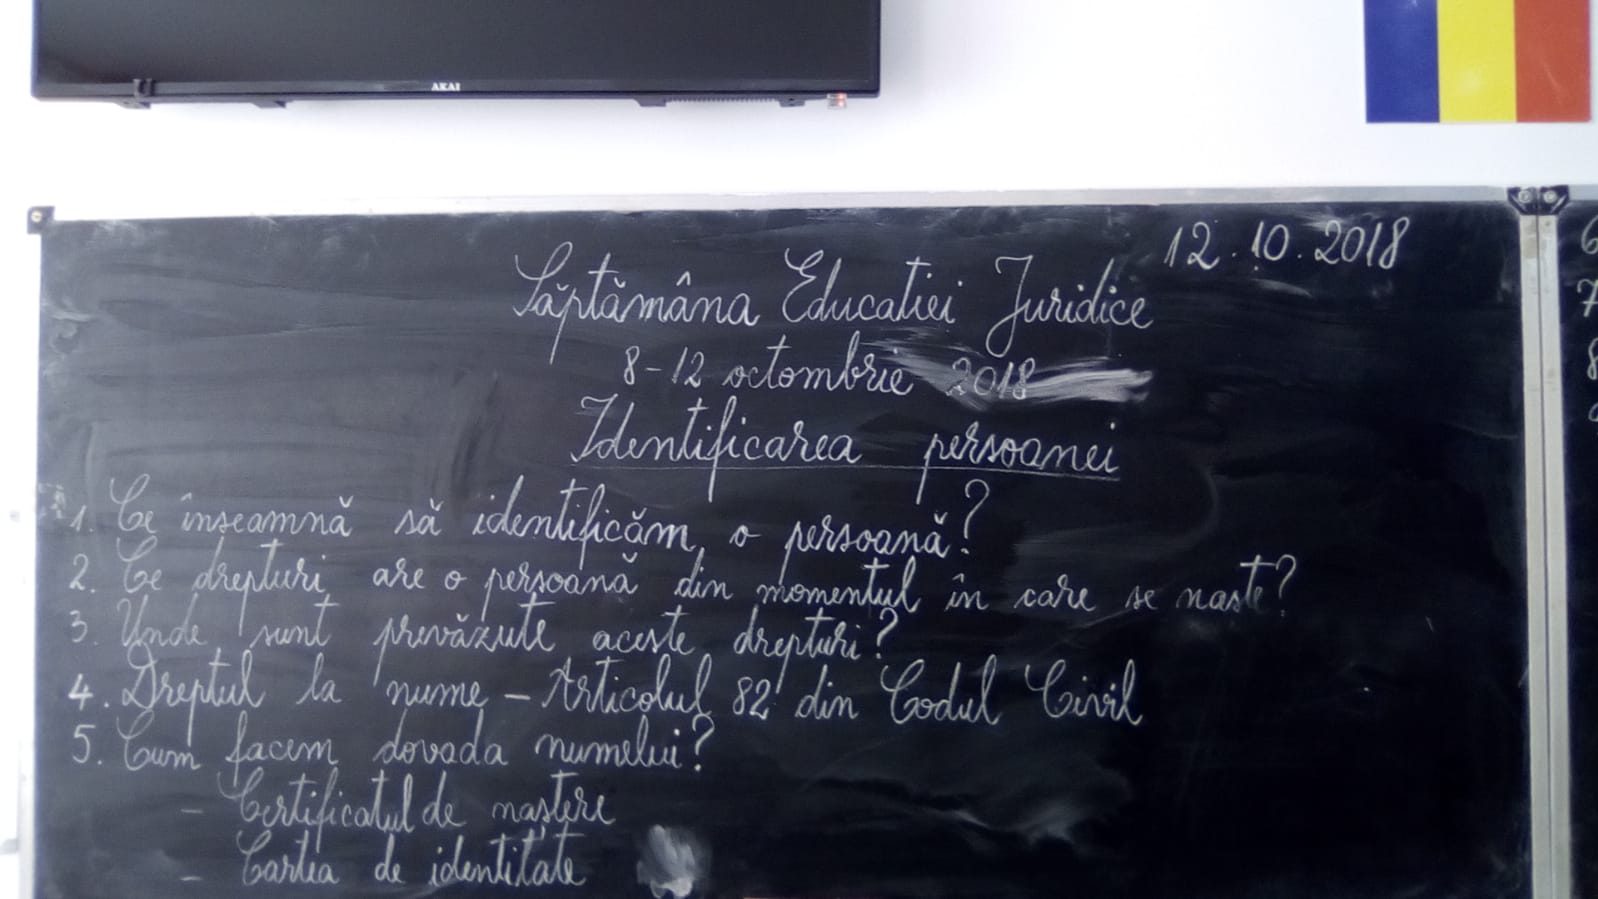 AKAI
12.10.2018
Săptămâna Educatiei Juridice
8-12 octombrie 2018
Identificarea persoanei
1. Ce înseamnă să identificăm o persoană?
2. Ce drepturi are o persoană din momentul în care se naste?
3. Unde sunt prevăzute aceste drepturi?
4. Dreptul la nume - Articolul 82 din Codul Civil
5. Cum facem dovada numelui?
- Certificatul de naștere
- Cartea de identitate
6
7
8